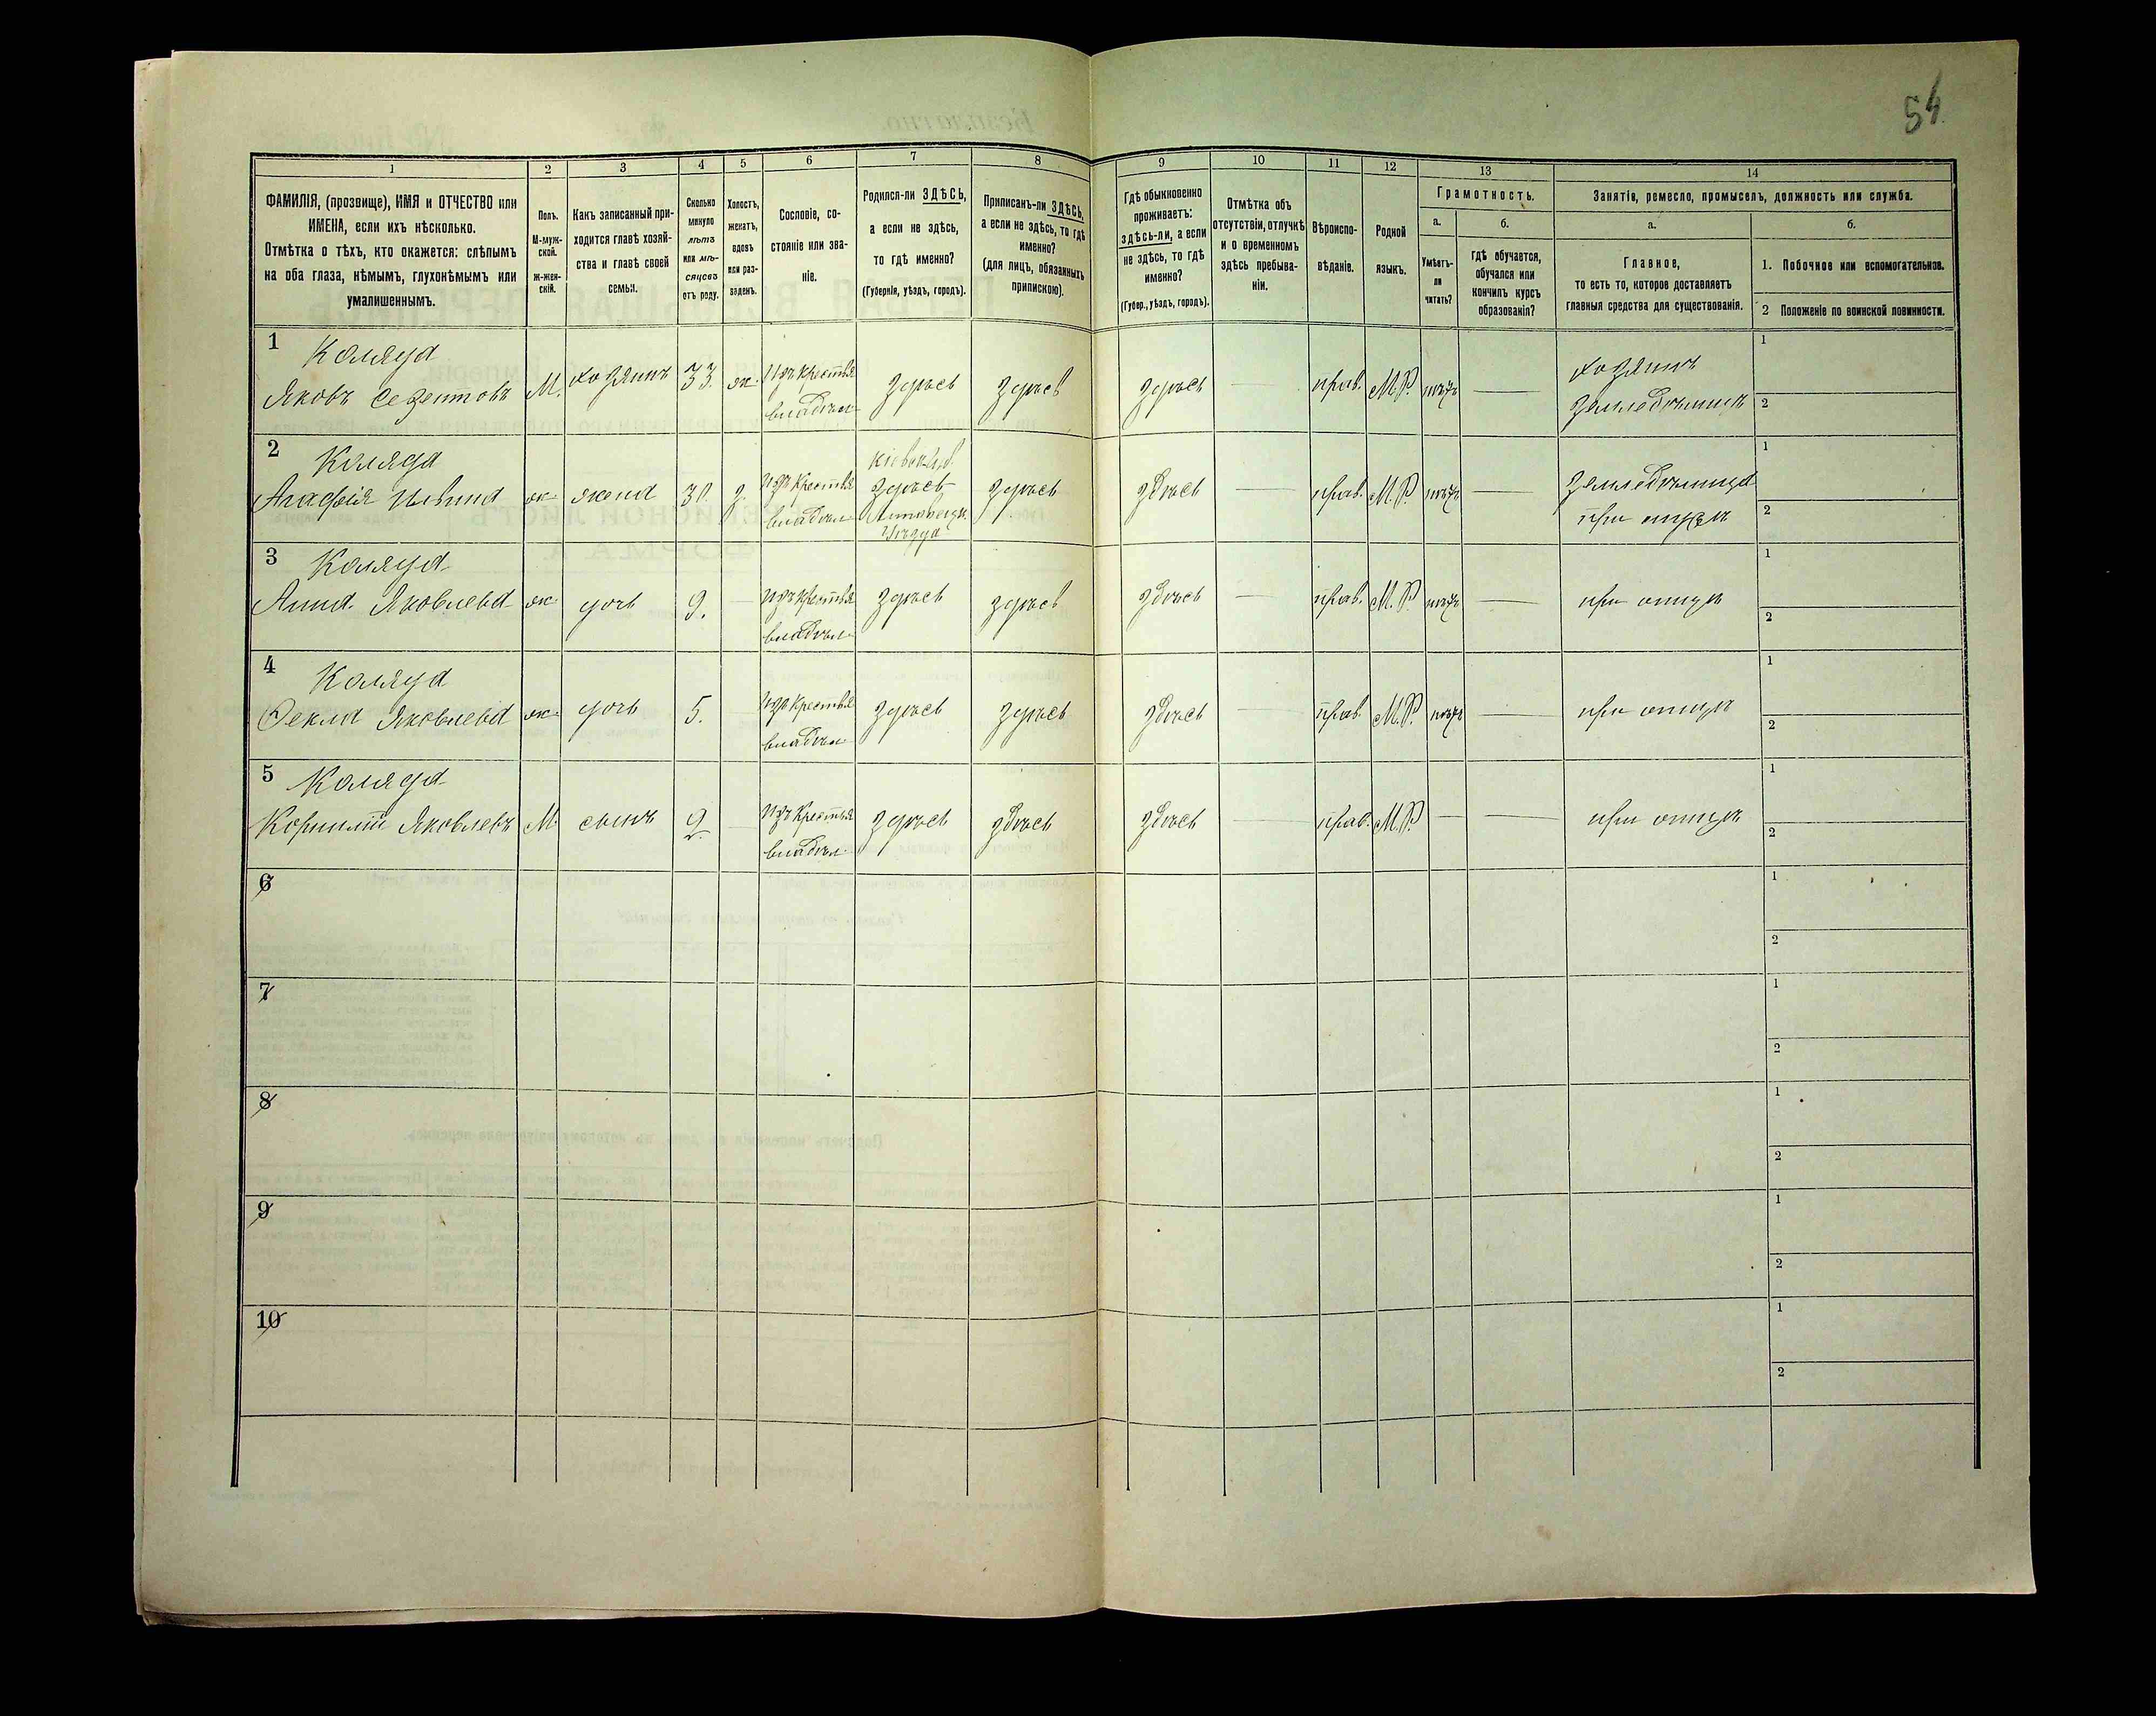 54
1 2 3 4 5 6 7 8 9 10 11 12 13 14
ФАМИЛІЯ, (прозвище), ИМЯ и ОТЧЕСТВО или
ИМЕНА, если ихъ нѣсколько.
Отмѣтка о тѣхъ, кто окажется: слѣпымъ
на оба глаза, нѣмымъ, глухонѣмымъ или
умалишеннымъ.
Полъ.
М-муж-
ской.
Ж-жен-
скій.
Какъ записанный при-
ходится главѣ хозяй-
ства и главѣ своей
семьи.
Сколько
минуло
лѣтъ
или мѣ-
сяцевъ
отъ роду.
Холостъ,
женатъ,
вдовъ
или раз-
веденъ.
Сословіе, со-
стояніе или зва-
ніе.
Родился-ли ЗДѢСЬ,
а если не здѣсь,
то гдѣ именно?
(Губернія, уѣздъ, городъ).
Приписанъ-ли ЗДѢСЬ,
а если не здѣсь, то гдѣ
именно?
(для лицъ, обязанныхъ
припискою).
Гдѣ обыкновенно
проживаетъ:
здѣсь-ли, а если
не здѣсь, то гдѣ
именно?
(Губер., уѣздъ, городъ).
Отмѣтка объ
отсутствіи, отлучкѣ
и о временномъ
здѣсь пребыва-
ніи.
Вѣроиспо-
вѣданіе.
Родной
языкъ.
Грамотность.
а.
Умѣетъ-
ли
читать?
б.
гдѣ обучается,
обучался или
кончилъ курсъ
образованія?
Занятіе, ремесло, промыселъ, должность или служба.
а.
Главное,
то есть то, которое доставляетъ
главныя средства для существованія.
б.
1. Побочное или вспомогательное.
2 Положеніе по воинской повинности.
1 Коляда
Яковъ М. хозяинъ 33. ж. Изъ крестья здѣсь здѣсь здѣсь прав. М.Р. нѣтъ хозяинъ 1
владѣл. земледѣлецъ 2
2 Коляда Кіевск. губ.
Агафія ж. жена 30. з. Изъ крестья здѣсь здѣсь прав. М.Р. нѣтъ 1
владѣл уѣзда при мужѣ 2
3 Коляда
Анна Яковлева ж. дочь 9. Изъ крестья здѣсь здѣсь здѣсь прав. М.Р. нѣтъ при отцѣ 1
владѣл. 2
4 Коляда
Ѳекла Яковлева ж. дочь 5. Изъ крестья здѣсь здѣсь здѣсь прав. М.Р. нѣтъ при отцѣ 1
владѣл 2
5 Коляда
Корнилій Яковлевъ М сынъ 2. Изъ крестья здѣсь здѣсь здѣсь прав. М.Р. при отцѣ 1
владѣл 2
6 1
2
7 1
2
8 1
2
9 1
2
10 1
2